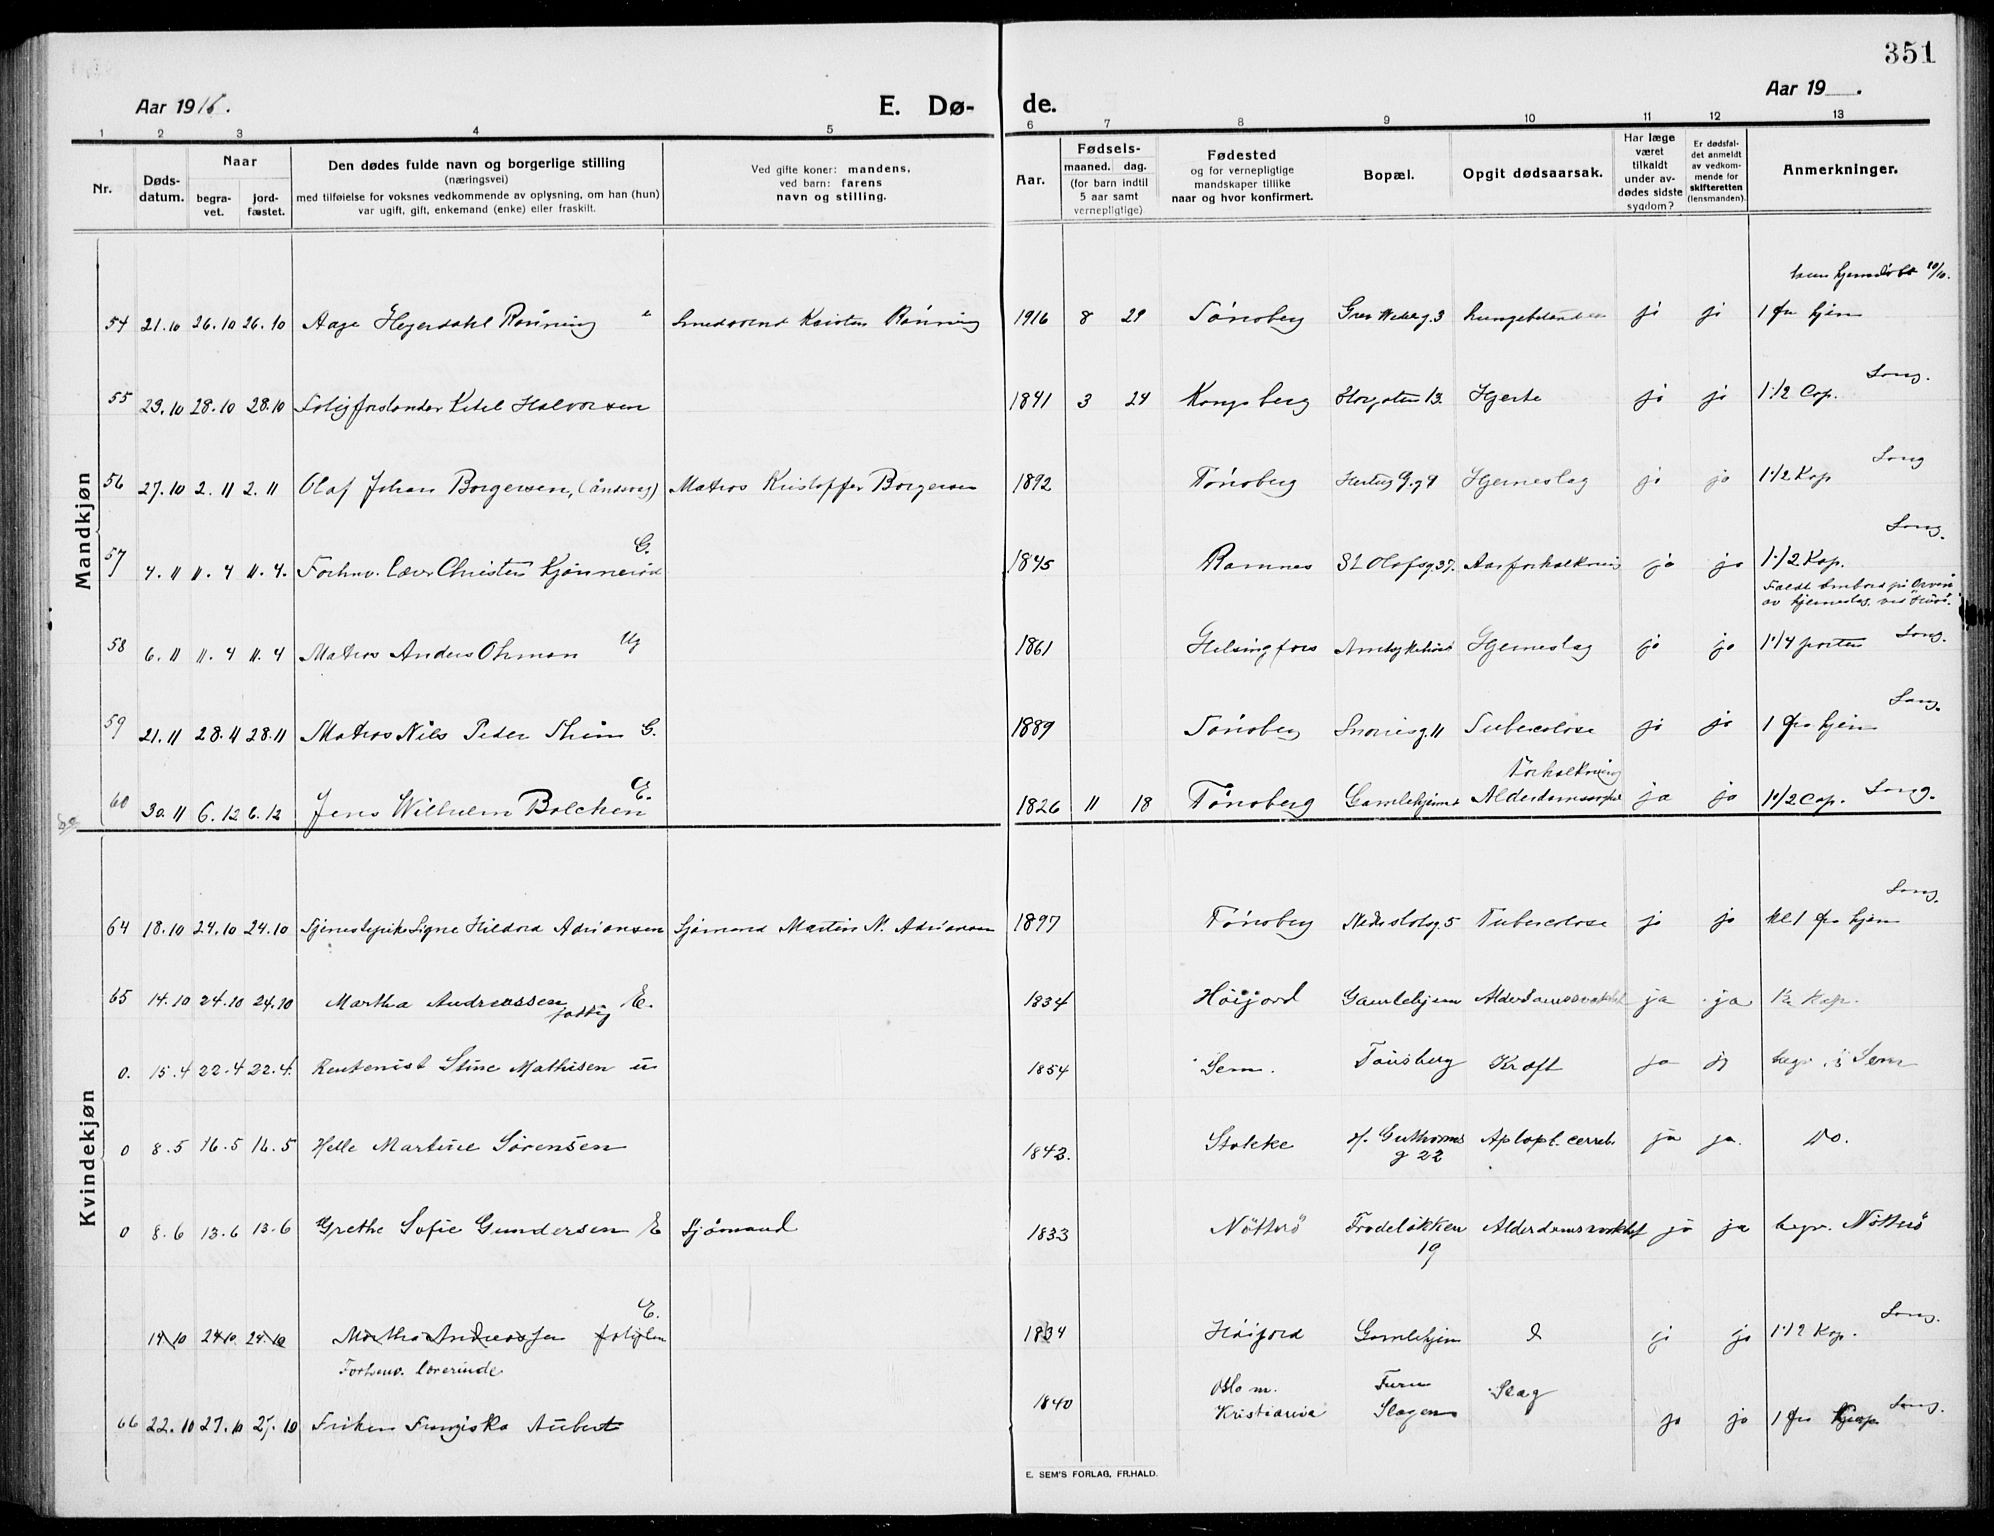 351
Aar 1916.
E. Dø-
de.
Aar 19 .
1 2 3 4 5 6 7 8 9 10 11 12 13
Nr.
Døds-
datum.
Naar
begra-
vet.
jord-
fæstet.
Den dødes fulde navn og borgerlige stilling
(næringsvei)
med tilføielse for voksnes vedkommende av oplysning, om han (hun)
var ugift, gift, enkemand (enke) eller fraskilt.
Ved gifte koner: mandens,
ved barn: farens
navn og stilling.
Aar.
Fødsels-
maaned. dag.
(for barn indtil
5 aar samt
vernepligtige)
Fødested
og for vernepligtige
mandskaper tillike
naar og hvor konfirmert.
Bopæl.
Opgit dødsaarsak.
Har læge
været
tilkaldt
under av-
dødes sidste
sygdom?
Er dødsfal-
det anmeldt
av vedkom-
mende for
skifteretten
(lensmanden).
Anmerkninger.
Mandkjøn
hjemdøbt 10/10.
54 21.10 26.10 26.10 Aage Heyerdahl Rønning Smedsvend Karsten Rønning 1916 8 29 Tønsberg Grev Wedelg. 3 Lungebetændelse ja ja 1 fra hjem
Song.
55 23.10 28.10 28.10 Ketel Halvorsen 1841 3 24 Kongsberg Storgaten 13. Hjerte ja ja 1.1/2 Cap.
Song
56 27.10 2.11 2.11 Olaf Johan Borgersen, (åndssvag) Matros Kristoffer Borgersen 1892 Tønsberg Hertug G.g 4 Hjerneslag ja ja 1.1/2 Kap
Song.
G.
57 4.11 11.4 11.4. Forhenv. Christen Kjønnerød 1845 Ramnes St Olafsg 37. Aareforkalkning ja ja 1.1/2 Kap.
Faldt ombord på
av hjerneslag. ved
58 6.11 11.4 11.4 Matros Anders Ohman Ug 1861 Helsingfors Amtsykehuset Hjerneslag ja ja 1.1/4 porten Song.
Song.
59 21.11 28.11 28.11 Matros Nils Peder Thim G. 1889 Tønsberg Snorresg. 11 Tuberculose ja ja 1 fra hjem
Forkalkning
E.
60 30.11 6.12 6.12 Jens Wilhelm Bolchen 1826 11 18 Tønsberg Gamlehjem Alderdomssvak ja ja 1.1/2 Cap. Song.
Kvindekjøn
Song.
64 18.10 24.10 24.10 Tjenestepike Signe Hildora Adriansen Sjømand Martin N. Adriansen 1897 Tønsberg Nedreslotsg. 5 Tuberculose ja ja kl 1 fra hjem
65 14.10 24.10 24.10 Martha Andreassen fattig E. 1834 Høijord Gamlehjem Alderdomssvakhet ja ja 1½ Kap.
0. 15.4 22.4 22.4. Rentenist Stine Mathisen u 1854 Sem. Tønsberg Kræft ja ja begr. i Sem
0 8.5 16.5 16.5 Helle Martine Sørensen 1842. Stokke Guthorms g 22 Apoplt. cerreb. ja ja. Do.
0 8.6 13.6 13.6 Grethe Sofie Gundersen E Sjømand 1833 Nötterö Frodeløkken 19 Alderdomssvakhet ja ja begr. Nötterö
E. Song.
14.10 24.10 24.10 Martha Andreassen fatiglem 1834 Høijord Gamlehjem ja ja 1.1/2 Kap.
Forhenv. lærerinde
66 22.10 27.10 27.10 Friken Franziska Aubert 1840 Oslo m. Kristiania Furu Slagen Slag ja ja 1 fra Song.
E. SEM'S FORLAG, FR.HALD.